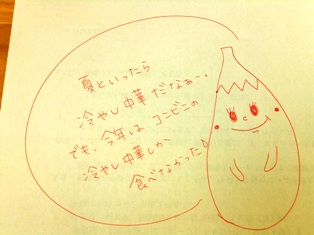 夏といったら
冷やし中華だなぁー。
でも、今年はコンビニの
冷やし中華しか
食べなかった。